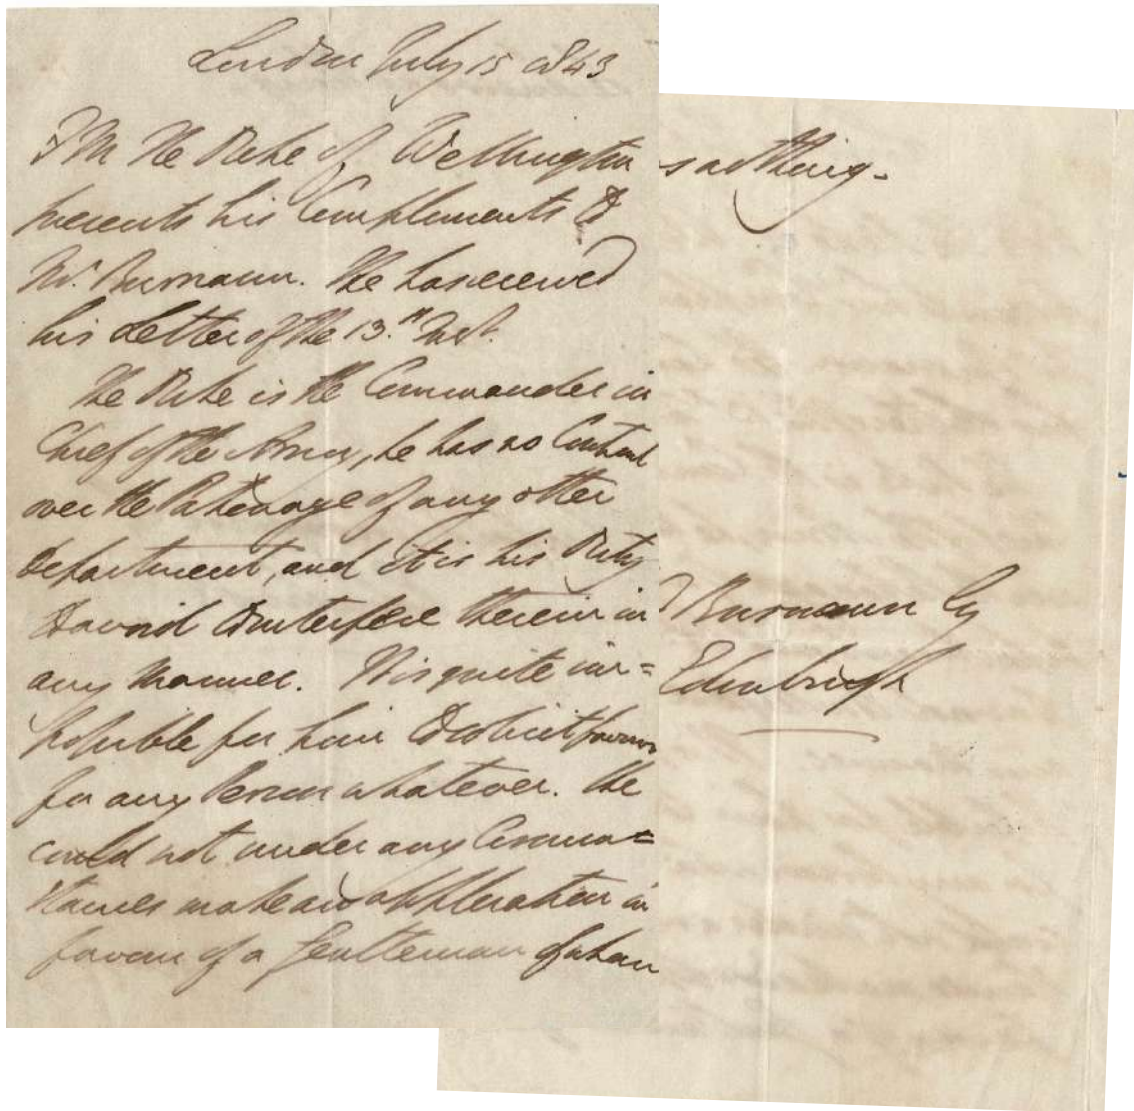 London July 15 1843
F M the Duke of Wellington
presents his Compliments to
Mr. Burnann. He has received
his Letter of the 13.th Inst.
The Duke is the Commander in
Chief of the Army, he has no Controul
over the Patronage of any other
department, and it is his Duty
to avoid to interfere therein in
any Manner. It is quite im=
possible for him to solicit favours
for any Person whatever. He
could not under any Circum=
stances make an application in
favour of a Gentleman of whom
s nothing.
Burnann Esq
Edinburgh